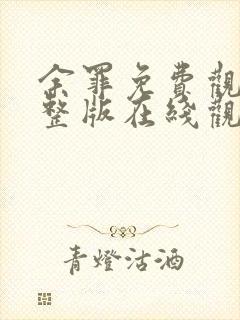 余罪免費觀
整版在綫觀
青燈沽酒